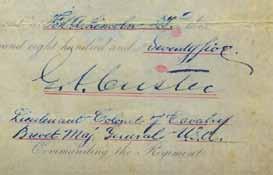 Ft. A. Lincoln D.T.
and eight hundred and seventy five.
G. A. Custer
Lieutenant Colonel 7 Cavalry
Brevet Maj. General U.S.A.
Commanding the Regiment